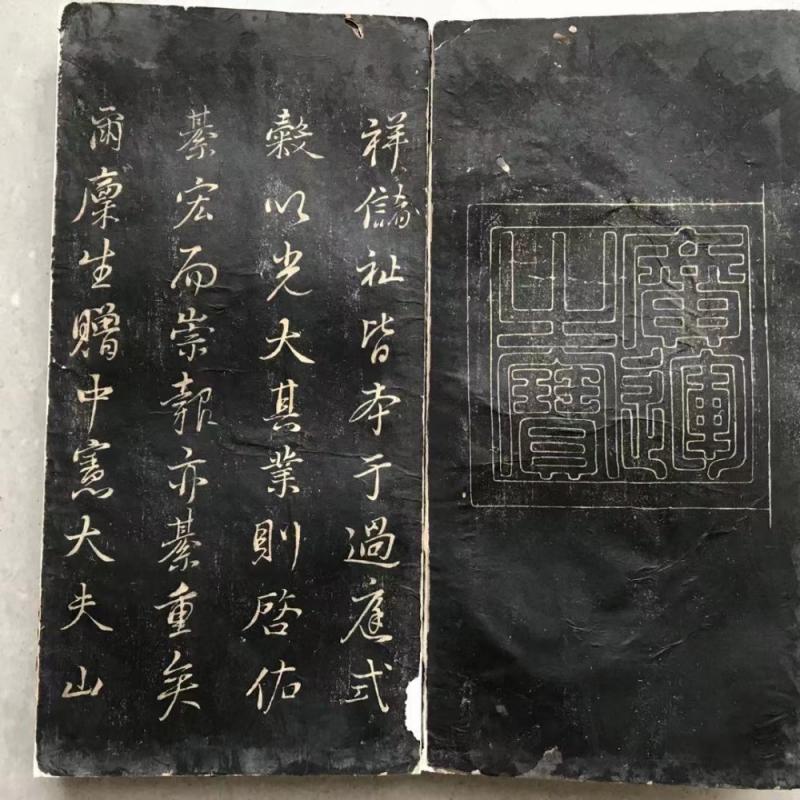 廣運
之寶
祥儲祉皆本于過庭式
穀以光大其業則啓佑
綦宏而崇報亦綦重矣
爾廩生贈中憲大夫山